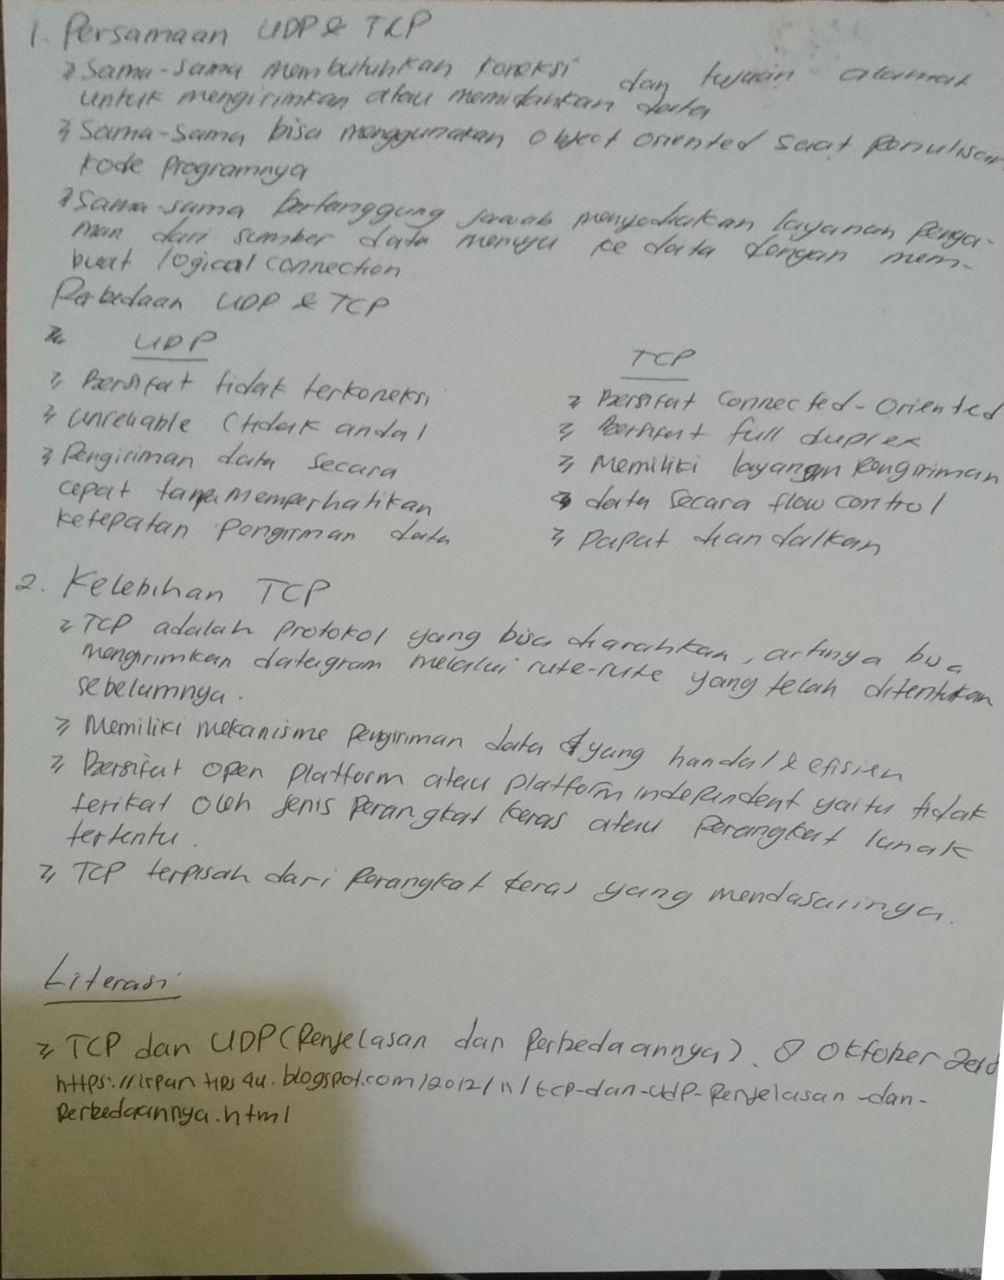 1. Persamaan UDP & TCP
> Sama-sama membutuhkan koneksi dan tujuan alamat
untuk mengirimkan atau memidahkan data
> Sama-sama bisa menggunakan object oriented saat penulisan
kode programnya
> Sama-sama bertanggung jawab menyediakan layanan pengi-
man dari sumber data menuju ke data dengan mem-
buat logical connection
Perbedaan UDP & TCP
UDP
> Bersifat tidak terkoneksi
> Unreliable (tidak andal
> Pengiriman data secara
cepat tanpa memperhatikan
ketepatan pengiriman data
TCP
> Bersifat connected-oriented
> Bersifat full duplex
> Memiliki layanan pengiriman
data secara flow control
> Dapat diandalkan
2. Kelebihan TCP
> TCP adalah protokol yang bisa diarahkan, artinya bisa
mengirimkan datagram melalui rute-rute yang telah ditentukan
sebelumnya.
> Memiliki mekanisme pengiriman data yang handal & efisien
> Bersifat open platform atau platform independent yaitu tidak
terikat oleh jenis perangkat keras atau perangkat lunak
tertentu.
> TCP terpisah dari perangkat keras yang mendasarinya.
Literasi
> TCP dan UDP (Penjelasan dan Perbedaannya). 8 Oktober 2018
https://irpantips4u.blogspot.com/2012/11/tcp-dan-udp-penjelasan-dan-
perbedaannya.html